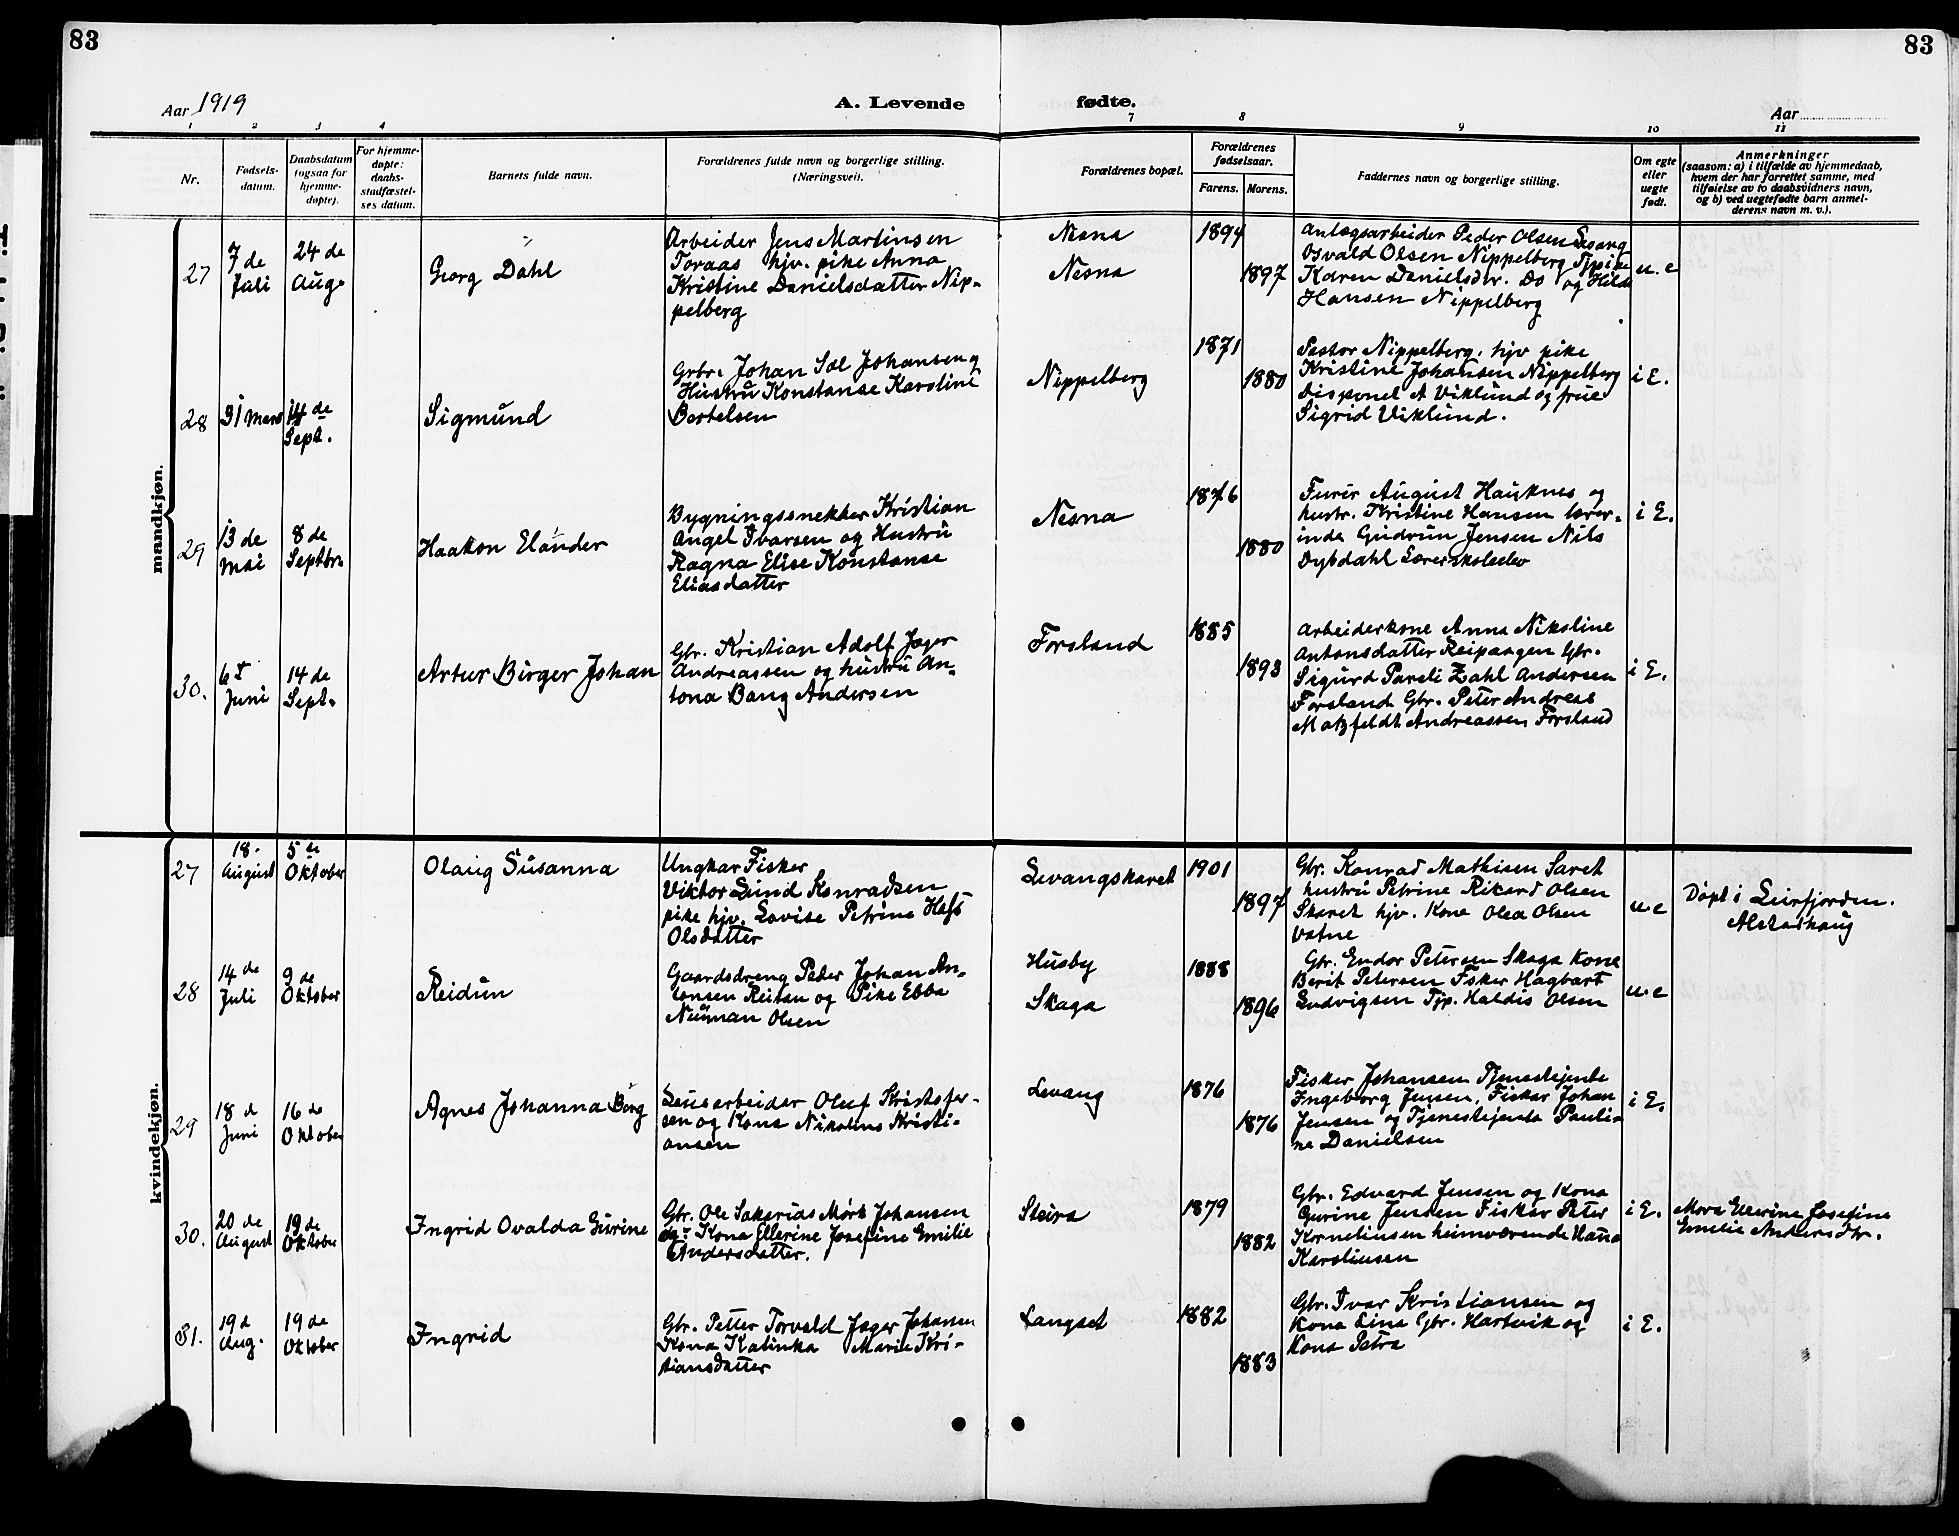 83
83
Aar 1919
A. Levende fødte.
Aar
1 2 3 4 7 8 9 10 11
Nr.
Fødsels-
datum.
Daabsdatum
(ogsaa for
hjemme-
døpte).
For hjemme-
døpte:
daabs-
stadfæstel-
ses datum.
Barnets fulde navn.
Forældrenes fulde navn og borgerlige stilling.
(Næringsvei).
Forældrenes bopæl.
Forældrenes
fødselsaar.
Farens. Morens.
Faddernes navn og borgerlige stilling.
Om egte
eller
uegte
født.
Anmerkninger
(saasom: a) i tilfælde av hjemmedaab,
hvem der har forrettet samme, med
tilføielse av to daabsvidners navn,
og b) ved uegtefødte barn anmel-
derens navn m. v.).
mandkjøn.
27
7 de
Juli
24 de
Aug.
Georg Dahl
Arbeider Jens Martinsen
Toraas hjv. pike Anna
Kristine Danielsdatter Nip-
pelberg
Nesna
Nesna
1894
1897
Anlægsarbeider Peder Olsen
Osvald Olsen Nippelberg Tjpike
Karen Danielsdtr. Do og Hilda
Hansen Nippelberg
u. e
28
31 mars
14 de
Sept.
Sigmund
Grbr. Johan Sæl Johansen og
Hustru Konstanse Karoline
Bertelsen
Nippelberg
1871
1880
Pastor Nippelberg. hjv pike
Kristine Johansen Nippelberg
disponet A Viklund og frue
Sigrid Viklund.
i E.
29
13 de
Mai
8 de
Septbr.
Haakon Elander
Bygningssnekker Kristian
Angel Ivarsen og Hustru
Ragna Elise Konstanse
Eliasdatter
Nesna
1876
1880
Furér August Hauknes og
hustr. Kristine Hansen lærer-
inde Gudrun Jensen Nils
Dybdahl Lærerskoleelev
i E.
30.
6te
Juni
14 de
Sept.
Artur Birger Johan
Gbr. Kristian Adolf Jæger
Andreassen og hustru An-
tona Bang Andersen
Forsland
1885
1893
Arbeiderkone Anna Nikoline
Antonsdatter Reipaagen Gbr.
Sigurd Pareli Zahl Andersen
Forsland Gbr. Peter Andreas
Motzfeldt Andreassen Forsland
i E.
kvindekjøn.
27
18.
August
5 te
Oktober
Olaug Susanna
Ungkar Fisker
Viktor Lund Konradsen
pike hjv. Lovise Petrine
Olsdatter
Levangskaret
1901
1897
Gbr. Konrad Mathisen Saret
hustru Petrine Rikard Olsen
Skaret hjv. Kone Olea Olsen
Vatne
u. e
Døpt i Leirfjorden.
Alstadhaug
28
14 de
Juli
9 de
Oktober
Reidun
Gaardsdreng Peder Johan An-
tonsen Reitan og Pike Ebba
Neuman Olsen
Husby
Skaga
1888
1896
Gbr. Endor Petersen Skaga Kone
Berit Petersen Fsker Hagbart
Ludvigsen Tjp. Haldis Olsen
u. e
29
18 d
Juni
16 de
Oktober
Agnes Johanna Borg
Leiearbeider Oluf Kristofer-
sen og Kona Nikoline Kristi-
ansen
Levang
1876
1876
Fisker Johansen Tjenestejente
Ingeborg Jensen, Fisker Johan
Jensen og Tjenestejente Pauli-
ne Danielsen
i E.
30.
20 de
August
19 de
Oktober
Ingrid Ovalda Gurine
Gbr. Ole Sakarias Mørk Johansen
og Kona Ellerine Josefine Emilie
Andersdatter.
Steira
1879
1882
Gbr. Edvard Jensen og Kona
Gurine Jensen Fisker Peter
Korneliussen heimværende Hana
Karoliusen
i E.
Mora Ellerine Josefine
Emelie Anders dtr.
31.
19 d
Aug.
19 de
Oktober
Ingrid
Gbr. Petter Torvald Jæger Johansen
Kona Katinka Marie Kri-
tiansdatter
Langset
1882
1883
Gbr. Ivar Kristiansen og
Kona Lina Gbr. Hartvik og
Kona Petra
i E.